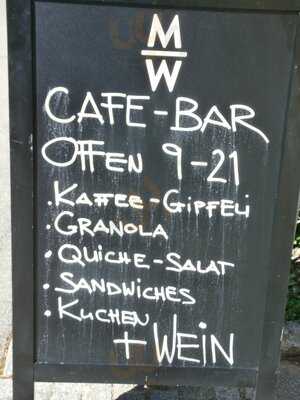 M
W
CAFE-BAR
OFFEN 9-21
. KAFFEE-GIPFELI
. GRANOLA
. QUICHE-SALAT
. SANDWICHES
. KUCHEN
+ WEIN